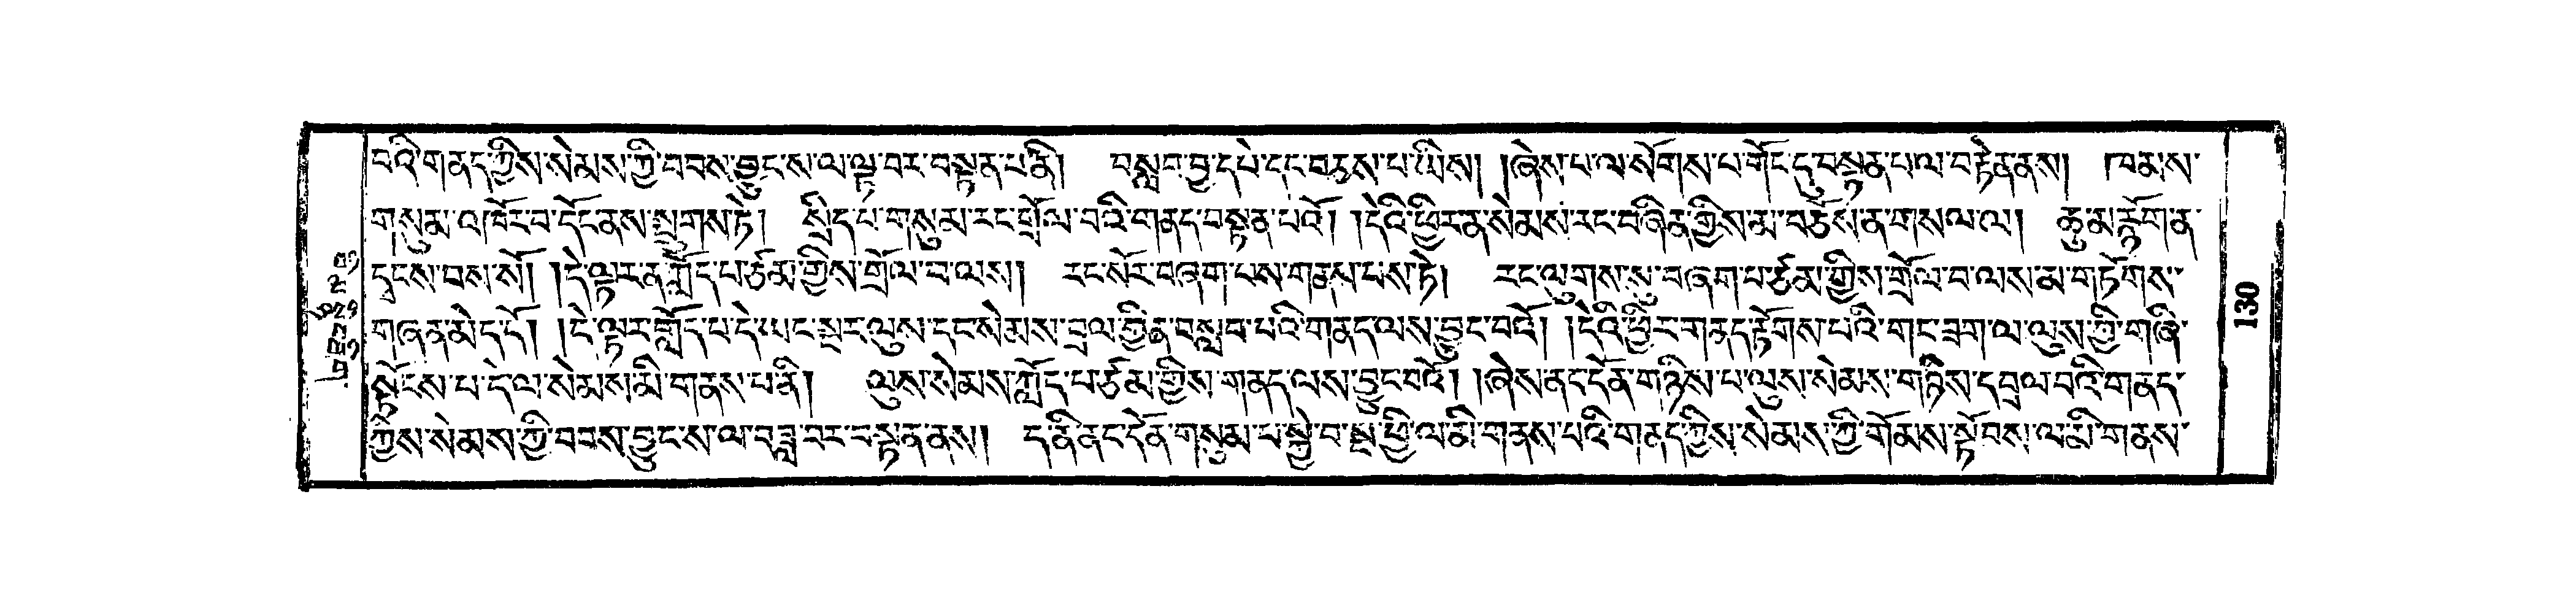 པའི་གནད་ཀྱིས་སེམས་ཀྱི་བབས་བྱུངས་ལ་ལྟ་བར་བསྟན་པ་ནི། བསླབ་བྱ་དཔེ་དང་བཅས་པ་ཡིས། །ཞེས་པ་ལ་སོགས་པ་གོང་དུ་བསྟན་པ་ལ་བརྟེན་ནས། ཁམས་
གསུམ་འཁོར་བ་དོང་ནས་སྤྲུགས་ཏེ། སྲིད་པ་གསུམ་རང་གྲོལ་བའི་གནད་བསྟན་པའོ། །དེའི་ཕྱིར་ན་སེམས་རང་བཞིན་གྱིས་མ་བཅོས་ན་གསལ་ལ། ཆུ་མ་རྙོག་ན་
དྭངས་བས་སོ། །དེ་ལྟར་ན་ཀློད་པ་ཙམ་གྱིས་གྲོལ་བ་ལས། རང་སོར་བཞག་པས་གནས་པས་ཏེ། རང་ལུགས་སུ་བཞག་པ་ཙམ་གྱིས་གྲོལ་བ་ལས་མ་གཏོགས་
གཞན་མེད་དོ། །དེ་ལྟར་གློད་པ་དེ་ཡང་སྔར་ལུས་དང་སེམས་བྲལ་གྱིན་བསླབ་པའི་གནད་ལས་བྱུང་བའོ། །དེའི་ཕྱིར་གནད་རྟོགས་པའི་གང་ཟག་ལ་ལུས་ཀྱི་གཞི་
སྟོངས་པ་དེ་ལ་སེམས་མི་གནས་པ་ནི། ལུས་སེམས་ཀློད་པ་ཙམ་གྱིས་གནད་ལས་བྱུང་བའོ། །ཞེས་ནང་དོན་གཉིས་པ་ལུས་སེམས་གཉིས་དབྲལ་བའི་གནད་
ཀྱིས་སེམས་ཀྱི་བབས་བྱུངས་ལ་བཟླ་བར་བསྟན་ནས། ད་ནི་ནང་དོན་གསུམ་པ་སྐྱེ་བ་སྔ་ཕྱི་ལ་མི་གནས་པའི་གནད་ཀྱིས་སེམས་ཀྱི་གོམས་སྟོབས་ལ་མི་གནས་
130